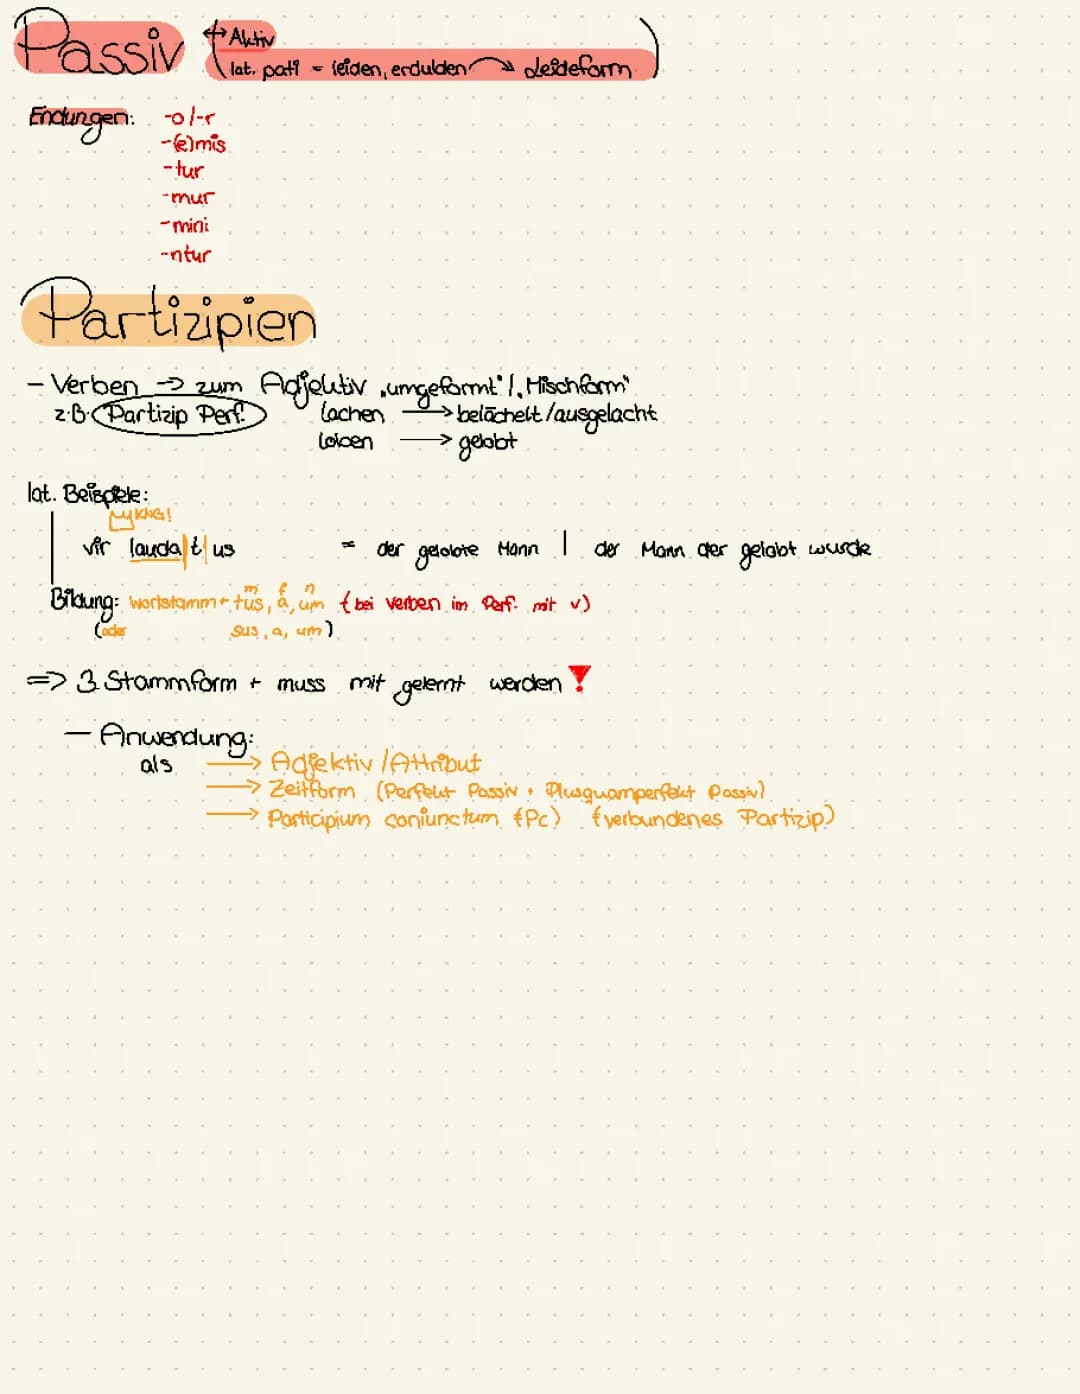 Passiv
↔ Aktiv
lat. pati = leiden, erdulden → Leideform
Endungen: -o/-r
-(e)mis
-tur
-mur
-mini
-ntur
Partizipien
- Verben → zum Adjektiv „umgeformt"/„Mischform"
z.B. Partizip Perf. lachen → belächelt/ausgelacht
loben → gelobt
lat. Beispiele:
KNG!
vir lauda|t|us = der gelobte Mann | der Mann der gelobt wurde
m f n
Bildung: Wortstamm + tus, a, um (bei Verben im Perf. mit v)
(oder sus, a, um)
=> 3. Stammform + muss mit gelernt werden !
- Anwendung:
als → Adjektiv/Attribut
→ Zeitform (Perfekt Passiv + Plusquamperfekt Passiv)
→ Participium coniunctum (Pc) (verbundenes Partizip)